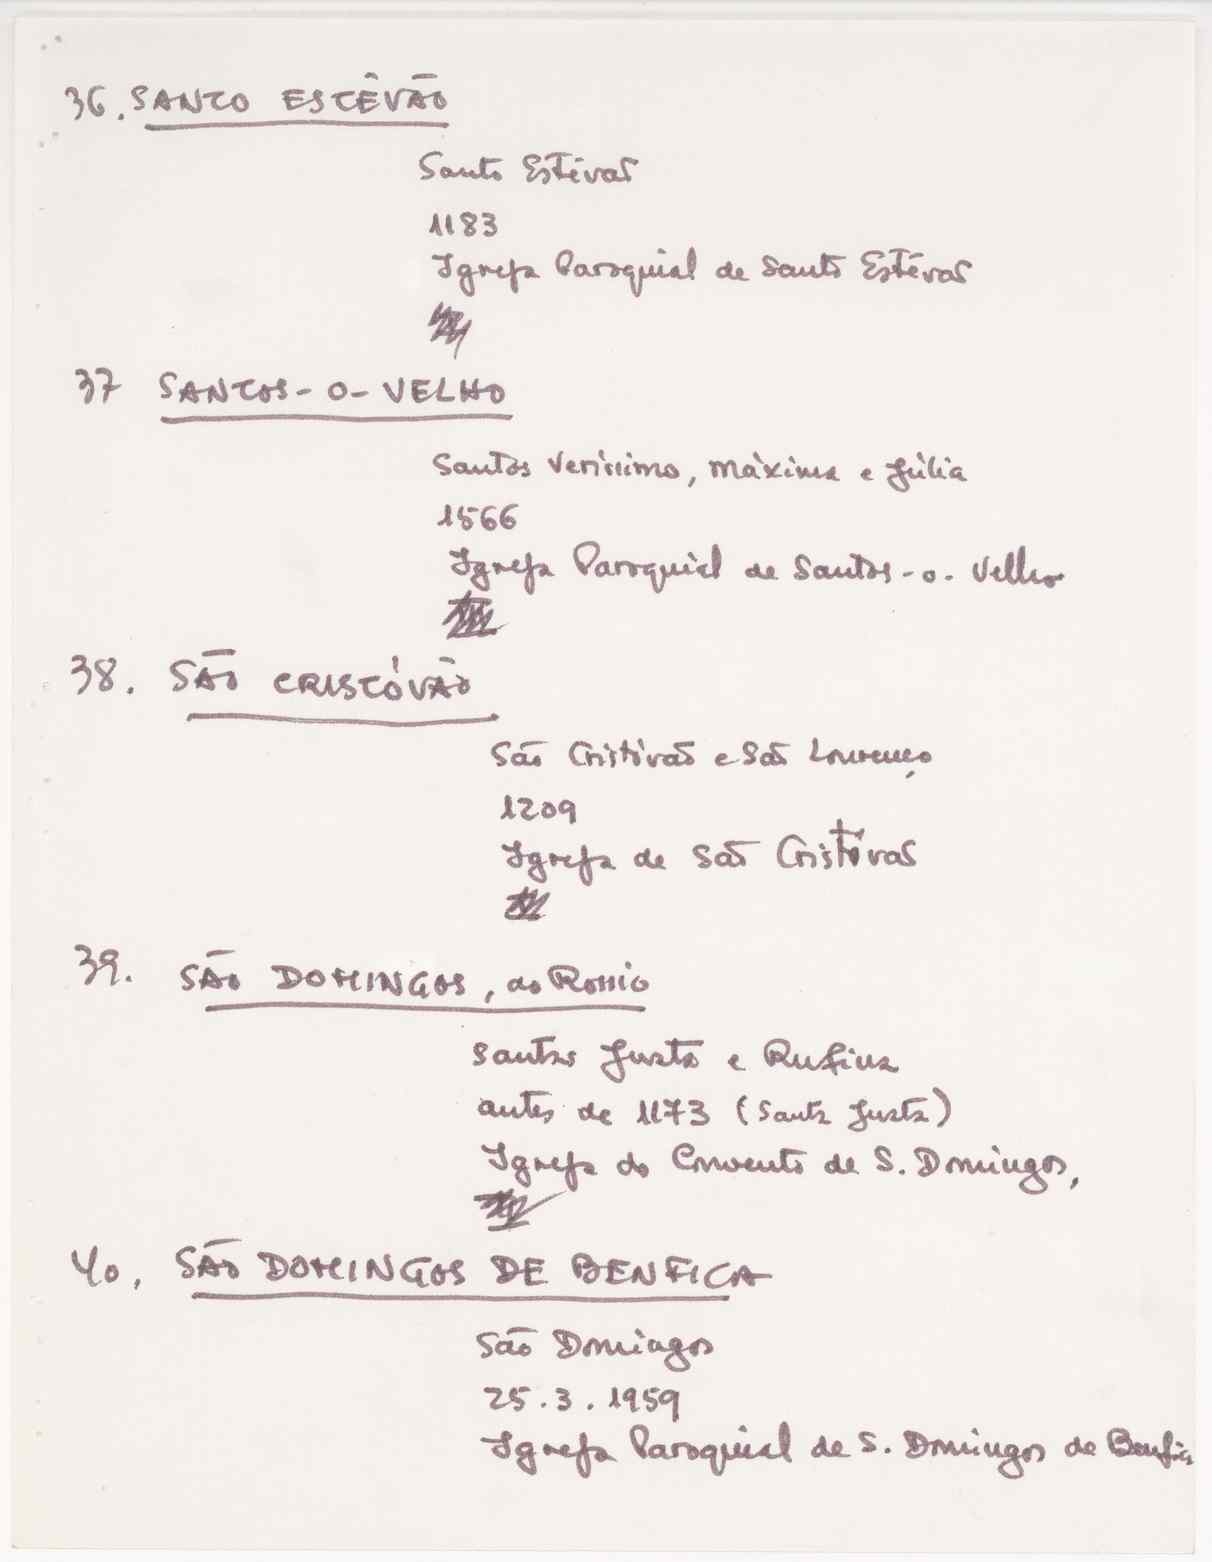 36. SANTO ESTÊVÃO
Santo Estêvão
1183
Igreja Paroquial de Santo Estêvão
37 SANTOS-O-VELHO
Santos Veríssimo, Máxima e Júlia
1566
Igreja Paroquial de Santos-o-Velho
38. SÃO CRISTÓVÃO
São Cristóvão e São Lourenço
1209
Igreja de São Cristóvão
39. SÃO DOMINGOS, ao Rossio
Santas Justa e Rufina
antes de 1173 (Santa Justa)
Igreja do Convento de S. Domingos,
40. SÃO DOMINGOS DE BENFICA
São Domingos
25.3.1959
Igreja Paroquial de S. Domingos de Benfica